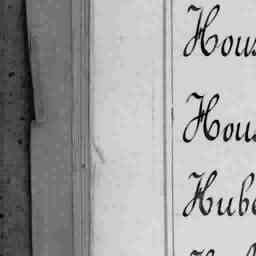 Hous
Hous
Hube